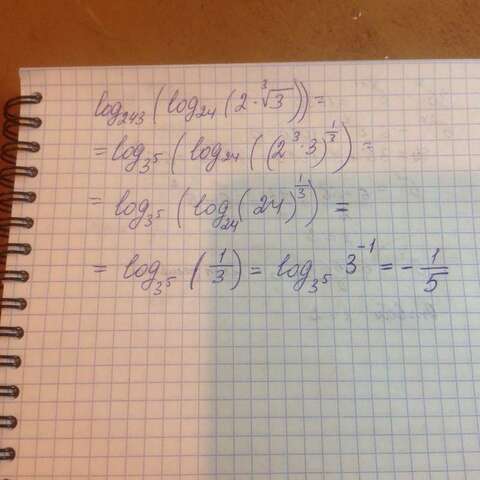 log₂₄₃(log₂₄(2·∛3)) =
= log₃⁵(log₂₄((2³·3)^(1/3)) =
= log₃⁵(log₂₄(24)^(1/3)) =
= log₃⁵(1/3) = log₃⁵ 3⁻¹ = -1/5